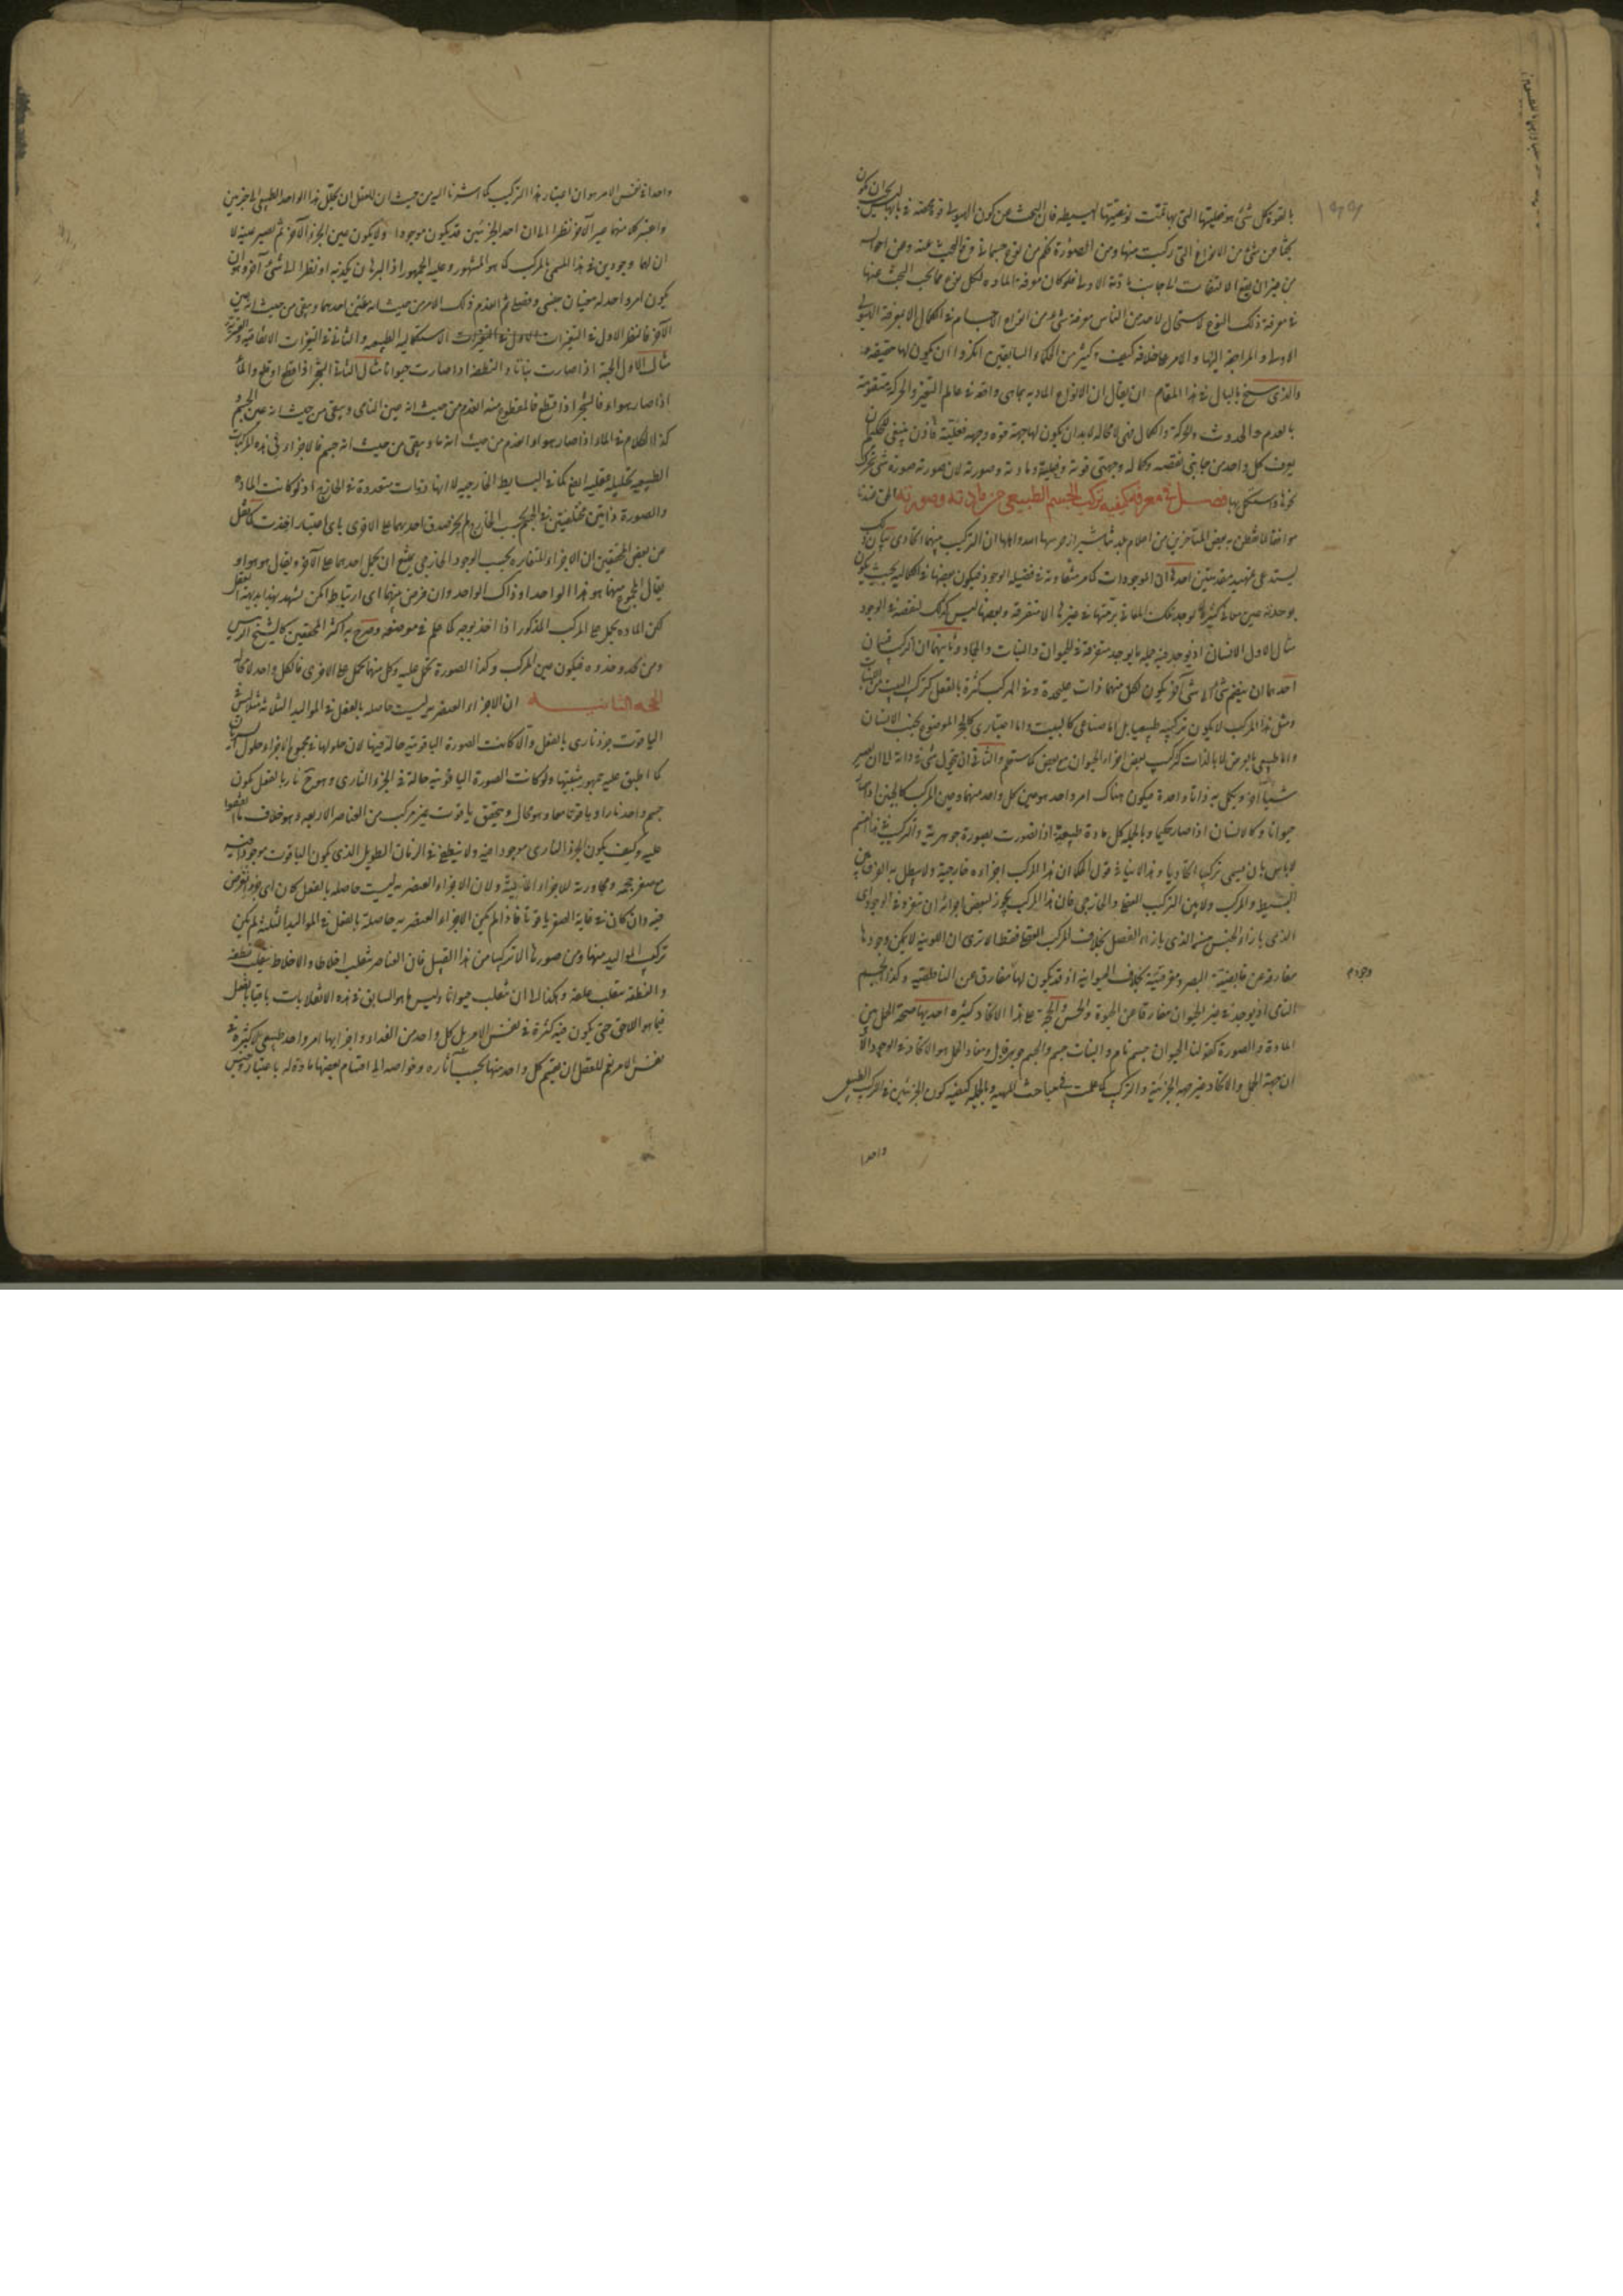 بالقوة كل شئ هو فعليتها التى بها تمت نوعيتها البسيطه فان البحث عن كون الهيولى قوة محضة
بحثا عن شئ من الانواع التى تركبت منها ومن الصورة فكم من نوع جسمانى وقع البحث عنه وعن احواله
من غير ان يقع الالتفات الى جانب مادته الاولى فلو كان معرفة الماده لكل نوع مما يجب البحث عنها
فى معرفة ذلك النوع لاستحال لاحد من الناس معرفة شئ من انواع الاجسام على الكمال الا بمعرفة الهيولى
الاولى والمراجعة اليها والامر على خلافه كيف وكثير من الحكماء السابقين انكروا ان يكون لها حقيقة
والذى سنح بالبال فى هذا المقام ان يقال ان الانواع المادية بما هى واقعة فى عالم التغير والحركة متقومة
بالعدم والحدوث والحركة والكمال فهى لا محالة لا بد ان يكون لها جهة قوه وجهة فعلية فاذن ينبغى للحكيم
يعرف كل واحد من جانبى نقصه وكماله وجهتى قوته وفعليته ومادته وصورته لان صورته صورة شئ
فصل فى معرفة كيفيه تركب الجسم الطبيعى من مادته وصورته الحق عندنا
موافقا لما تفطن به بعض المتأخرين من اعلام بلدتنا شيراز حرسها الله واهلها ان التركيب بينهما اتحادى
يستدعى تمهيد مقدمتين احديها ان الموجودات كما مر متفاوتة فى فضيلة الوجود فيكون بعضها فى الكمالية بحيث يكون
بوحدته عين معانى كثيرة لا توجد تلك المعانى برمتها فى غيرها الا متفرقة وبعضها ليس كذلك لنقصه فى الوجود
مثال الاول الانسان اذ يوجد فيه جملة ما يوجد متفرقة فى الحيوان والنبات والجماد وثانيهما ان التركيب قسمان
احدهما ان ينضم شئ الى شئ آخر يكون لكل منهما ذات عليحدة وفى المركب كثرة بالفعل كتركب البيت من اللبنات
ومثل هذا المركب لا يكون تركيبه طبيعيا بل اما صناعى كالبيت واما اعتبارى كالحجر الموضوع بجنب الانسان
واما طبيعى بالعرض لا بالذات كتركب بعض اجزاء الحيوان مع بعض كما ستعلم والثانى ان يتحول شئ فى ذاته الى ان يصير
شيئا آخر ويكمل به ذاتا واحدة فيكون هناك امر واحد هو عين كل واحد منهما وعين المركب كالجنين اذا صار
حيوانا وكالانسان اذا صار حكيما وبالجملة كل مادة طبيعية اذا تصورت بصورة جوهرية والتركيب فى هذا القسم
لا باس بان يسمى تركيبا اتحاديا وهذا لا ينافى قول الحكماء ان هذا المركب اجزاءه خارجية ولا يبطل به الفرق بين
البسيط والمركب ولا بين التركيب العقلى والخارجى فان هذا المركب يجوز لبعض اجزائه ان ينفرد فى الوجود اى
الذى بازاء الجنس منه الذى بازاء الفصل بخلاف المركب العقلى فقط الا ترى ان اللونية لا يمكن وجودها
مفارقة عن قابضية البصر ومفرقيته بخلاف الحيوانية اذ قد يكون لها مفارق عن الناطقية وكذا الجسم
النامى اذ يوجد فى غير الحيوان مفارقا عن الحيوة والحس والحجة على هذا الاتحاد كثيرة احديها صحة الحمل بين
المادة والصورة كقولنا الحيوان جسم نام والنبات جسم والجسم جوهر قابل ومفاد الحمل هو الاتحاد فى الوجود الا
ان جهة الحمل والاتحاد غير جهة الجزئية والتركيب كما علمت فى مباحث المهية وبالجملة كيفية كون الجزئين فى المركب الطبيعى
واحدا
واحدا فى نفس الامر هو ان اعتبار هذا التركيب كما اشرنا اليه من حيث ان للعقل ان يحلل هذا الواحد الطبيعى الى جزئين
واعتبر كلا منهما غير الآخر نظرا الى ان احد الجزئين قد يكون موجودا ولا يكون عين الجزء الآخر ثم يصير عينه لا
ان لهما وجودين فى هذا المسمى بالمركب كما هو المشهور وعليه الجمهور اذ البرهان يكذبه او نظرا الى شئ آخر وهو ان
يكون امر واحد له معنيان جنسى وفصلى ثم انعدم ذلك الامر من حيث انه عين احدهما وبقى من حيث انه عين
الآخر فالنظر الاول فى التغيرات الاستكمالية الطبيعيه والثانى فى التغيرات الاتفاقية
مثال الاول الحبة اذا صارت نباتا والنطفة اذا صارت حيوانا مثال الثانى الشجر اذا قطع او قلع والماء
اذا صار هواء فالشجر اذا قطع فالمقطوع منه انعدم من حيث انه عين النامى وبقى من حيث انه عين الجسم
كذا الكلام فى الماء اذا صار هواء انعدم من حيث انه ماء وبقى من حيث انه جسم فالاجزاء فى هذه المركبات
الطبيعيه تحليلية عقلية ايضا كما فى البسايط الخارجيه لا انها ذوات متعددة فى الخارج اذ لو كانت المادة
والصورة ذاتين مختلفتين فى الجسم بحسب الخارج لم يجز صدق احدهما على الاخرى باى اعتبار اخذت كما نقل
عن بعض المحققين ان الاجزاء المتغايره بحسب الوجود الخارجى يمتنع ان يحمل احدهما على الآخر ويقال هو هو او
يقال المجموع منهما هو هذا الواحد او ذاك الواحد وان فرض بينهما اى ارتباط امكن يشهد بهذا بديهة العقل
لكن المادة يحمل على المركب المذكور اذا اخذ بوجه كما علم فى موضعه وصرح به اكثر المحققين كالشيخ الرئيس
ومن يحذو حذوه فيكون عين المركب وكذا الصورة تحمل عليه وكل منهما يحمل على الاخرى فالكل واحد لا محالة
الحجه الثانيه ان الاجزاء العنصريه ليست حاصله بالفعل فى المواليد الثلاثة مثلا ليس فى
الياقوت جزء نارى بالفعل والا كانت الصورة الياقوتية حالة فيها لان حلولها فى مجموع الاجزاء حلول سريان
كما اطبق عليه جمهور مثبتيها ولو كانت الصورة الياقوتية حالة فى الجزء النارى وهو ح نار بالفعل يكون
جسم واحد نارا وياقوتا معا وهو محال ويتحقق ياقوت غير مركب من العناصر الاربعه وهو خلاف ما اتفقوا
عليه وكيف يكون الجزء النارى موجودا فيه ولا ينطفئ فى الزمان الطويل الذى يكون الياقوت موجودا فيه
مع صغر حجمه ومجاورته للاجزاء المائية ولان الاجزاء العنصريه ليست حاصله بالفعل كان اى جزء يفرض
فيه وان كان فى غاية الصغر ياقوتا فاذا لم يكن الاجزاء العنصريه حاصلة بالفعل فى المواليد الثلثة لم يكن
تركب المواليد منها ومن صورها الا تركبا من هذا القبيل فان العناصر تنقلب اخلاطا والاخلاط ينقلب نطفة
والنطفة تنقلب علقة وهكذا الى ان تنقلب حيوانا وليس ما هو السابق فى هذه الانقلابات باقيا بالفعل
فيما هو اللاحق حتى يكون فيه كثرة فى نفس الامر بل كل واحد من الغذاء واجزائها امر واحد طبيعى لا كثرة فى
نفس الامر نعم للعقل ان يقسم كل واحد منها بحسب آثاره وخواصه الى اقسام بعضها مادة له باعتبار وجنس